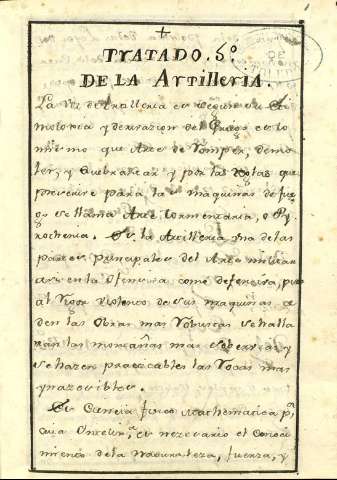 TRATADO. 5º
DE LA ARTILLERIA.
La Voz de Artilleria es segun su Eti
molozia y derivazion del Griego es lo
mismo que Arte de Romper, demo
ler, y quebrantar y por las Reglas que
previene para las maquinas de fue
go se llama Arte tormentaria, o Py
rothenia. Es la Artilleria una de las
partes principales del Arte militar
asi en la ofensiva, como defensiva, pues
al Vigor violento de sus maquinas ce
den las Obras mas Robustas se halla
nan las montañas mas y
se hazen practicables las Rocas mas
ynazesibles.
Es Ciencia fisico Mathematica pª
cuia es nezesario el Conoci
miento de la Naturaleza, fuerza, y